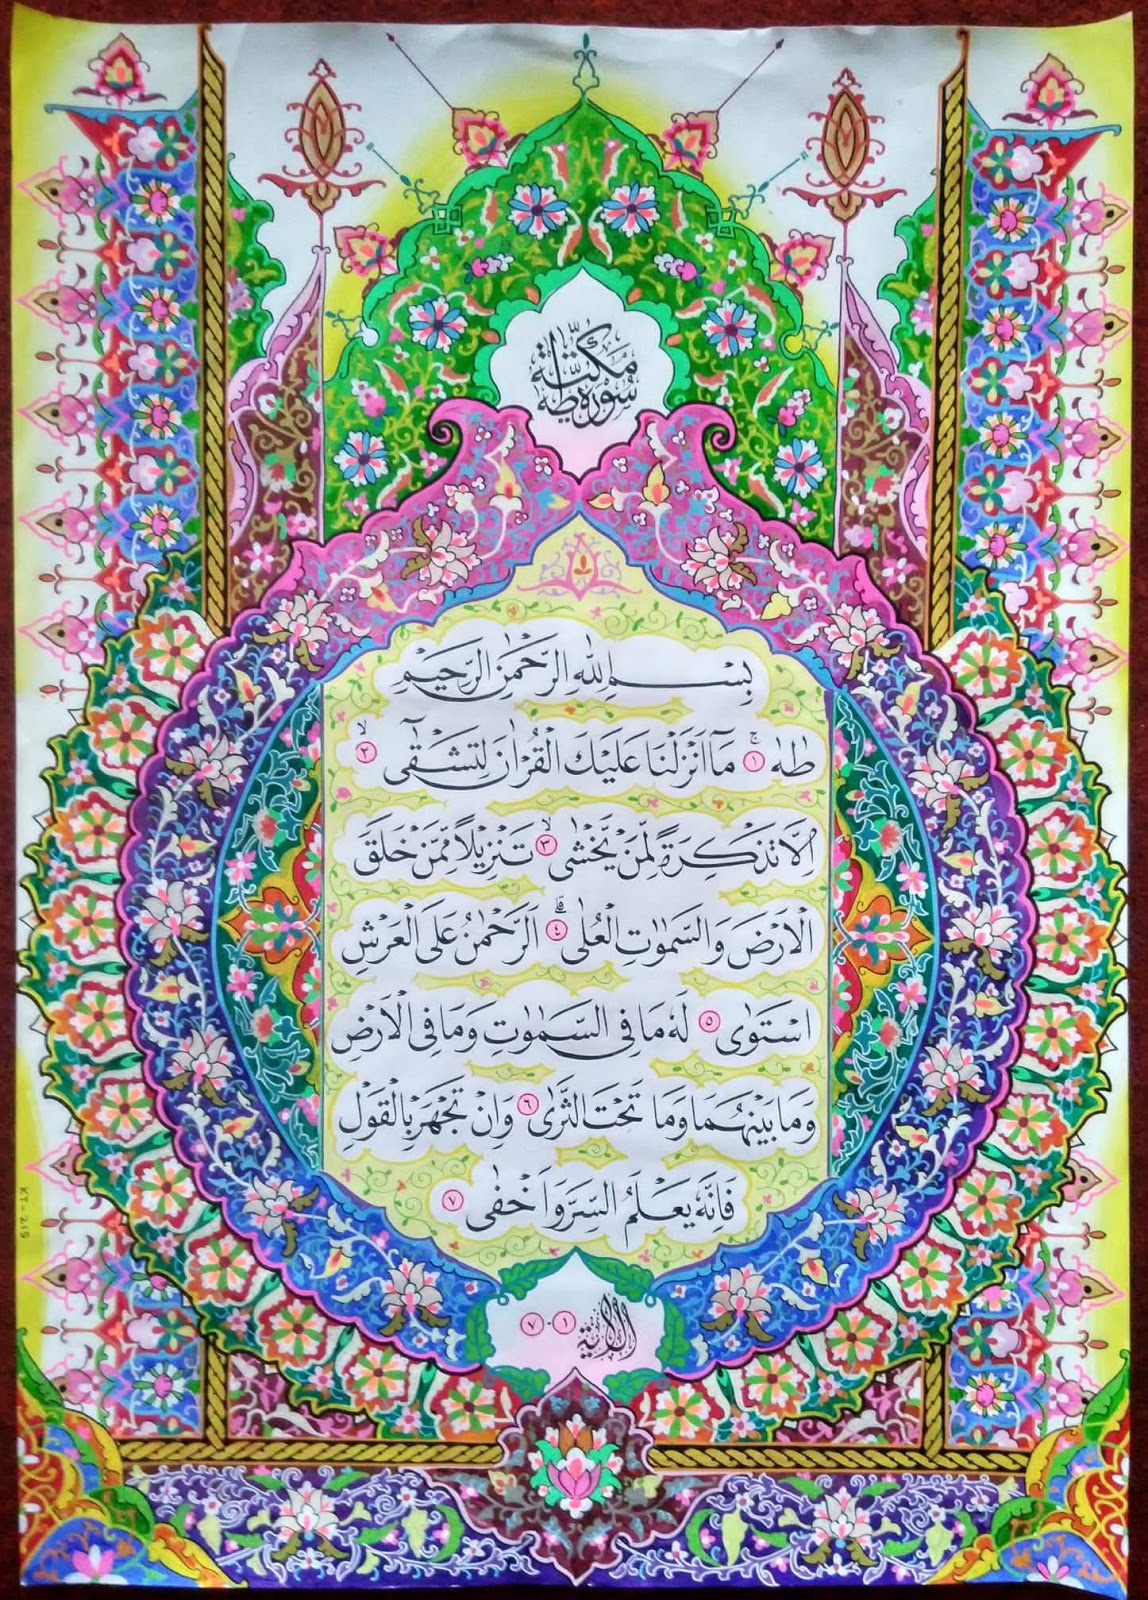 مكية
سورة طه
بِسْمِ اللهِ الرَّحْمٰنِ الرَّحِيْمِ
طٰهٰ ۚ ۝١ مَآ اَنْزَلْنَا عَلَيْكَ الْقُرْاٰنَ لِتَشْقٰٓى ۙ ۝٢
اِلَّا تَذْكِرَةً لِّمَنْ يَّخْشٰى ۙ ۝٣ تَنْزِيْلًا مِّمَّنْ خَلَقَ
الْاَرْضَ وَالسَّمٰوٰتِ الْعُلٰى ۗ ۝٤ اَلرَّحْمٰنُ عَلَى الْعَرْشِ
اسْتَوٰى ۝٥ لَهٗ مَا فِى السَّمٰوٰتِ وَمَا فِى الْاَرْضِ
وَمَا بَيْنَهُمَا وَمَا تَحْتَ الثَّرٰى ۝٦ وَاِنْ تَجْهَرْ بِالْقَوْلِ
فَاِنَّهٗ يَعْلَمُ السِّرَّ وَاَخْفٰى ۝٧
الاية ١-٧
KT-215